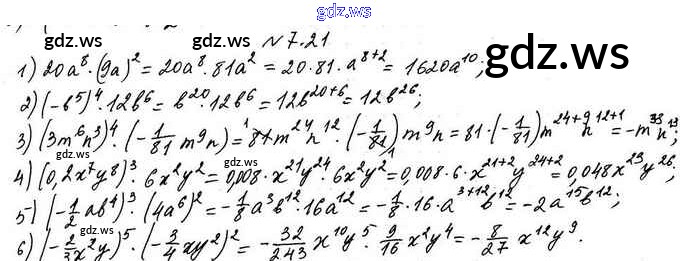 gdz.ws
gdz.ws gdz.ws
№ 7.21
1) 20a⁸·(9a)² = 20a⁸·81a² = 20·81·a⁸⁺² = 1620a¹⁰;
2) (-b⁵)⁴·12b⁶ = b²⁰·12b⁶ = 12b²⁰⁺⁶ = 12b²⁶;
3) (3m⁶n³)⁴·(-1/81 m⁹n) = 81m²⁴n¹²·(-1/81)m⁹n = 81·(-1/81)m²⁴⁺⁹n¹²⁺¹ = -m³³n¹³;
4) (0,2x⁷y⁸)³·6x²y² = 0,008·x²¹y²⁴·6x²y² = 0,008·6·x²¹⁺²y²⁴⁺² = 0,048x²³y²⁶;
5) (-1/2 ab⁴)³·(4a⁶)² = -1/8 a³b¹²·16a¹² = -1/8·16·a³⁺¹²b¹² = -2a¹⁵b¹²;
6) (-2/3 x²y)⁵·(-3/4 xy²)² = -32/243 x¹⁰y⁵·9/16 x²y⁴ = -8/27 x¹²y⁹.
gdz.ws gdz.ws